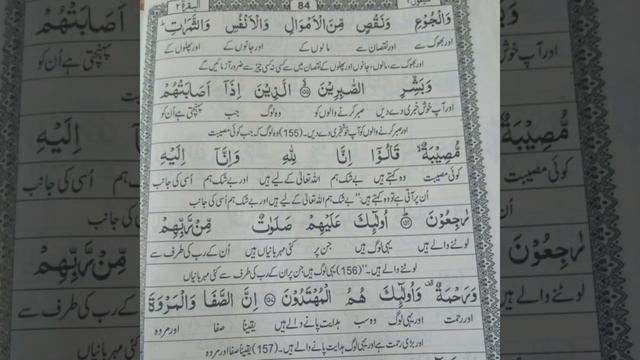 البقرة ٢
84
سیقول ٢
وَالْجُوْعِ وَنَقْصٍ مِّنَ الْاَمْوَالِ وَالْاَنْفُسِ وَالثَّمَرٰتِ ؕ
اور بھوک سے اور نقصان سے مالوں کے اور جانوں کے اور پھلوں کے
اور بھوک سے، مالوں، جانوں اور پھلوں کے نقصان میں سے کسی نہ کسی چیز سے ضرور آزمائیں گے
وَبَشِّرِ الصّٰبِرِيْنَ ﴿١٥٥﴾ الَّذِيْنَ اِذَآ اَصَابَتْهُمْ
اور آپ خوش خبری دے دیں صبر کرنے والوں کو وہ لوگ جب پہنچتی ہے اُن کو
اور صبر کرنے والوں کو آپ خوشخبری دے دیں۔ (155) وہ لوگ کہ جب کوئی مصیبت
مُّصِيْبَةٌ ۙ قَالُوْٓا اِنَّا لِلّٰهِ وَاِنَّآ اِلَيْهِ
کوئی مصیبت وہ کہتے ہیں بے شک ہم اللہ تعالیٰ کے لیے ہیں اور بے شک ہم اُسی کی جانب
اُن پر آتی ہے تو وہ کہتے ہیں: ’’بے شک ہم اللہ تعالیٰ کے لیے ہیں اور بے شک ہم اُسی کی جانب
رٰجِعُوْنَ ﴿١٥٦﴾ اُولٰٓئِكَ عَلَيْهِمْ صَلَوٰتٌ مِّنْ رَّبِّهِمْ
لوٹنے والے ہیں یہی لوگ ہیں جن پر کئی مہربانیاں ہیں اُن کے رب کی طرف سے
لوٹنے والے ہیں۔‘‘ (156) یہی لوگ ہیں جن پر ان کے رب کی طرف سے کئی مہربانیاں
وَرَحْمَةٌ ۫ وَاُولٰٓئِكَ هُمُ الْمُهْتَدُوْنَ ﴿١٥٧﴾ اِنَّ الصَّفَا وَالْمَرْوَةَ
اور رحمت اور یہی لوگ وہ سب ہدایت پانے والے ہیں یقیناً صفا اور مروہ
اور بڑی رحمت ہے اور یہی لوگ ہدایت پانے والے ہیں۔ (157) یقیناً صفا اور مروہ